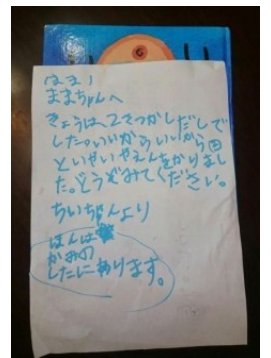 ままちゃんへ
きょうは、2さつかしだしで
した。いいからいいから④
といやいやえんをかりまし
た。どうぞみてください。
ちいちゃんより
ほんは
かみの
したにあります。